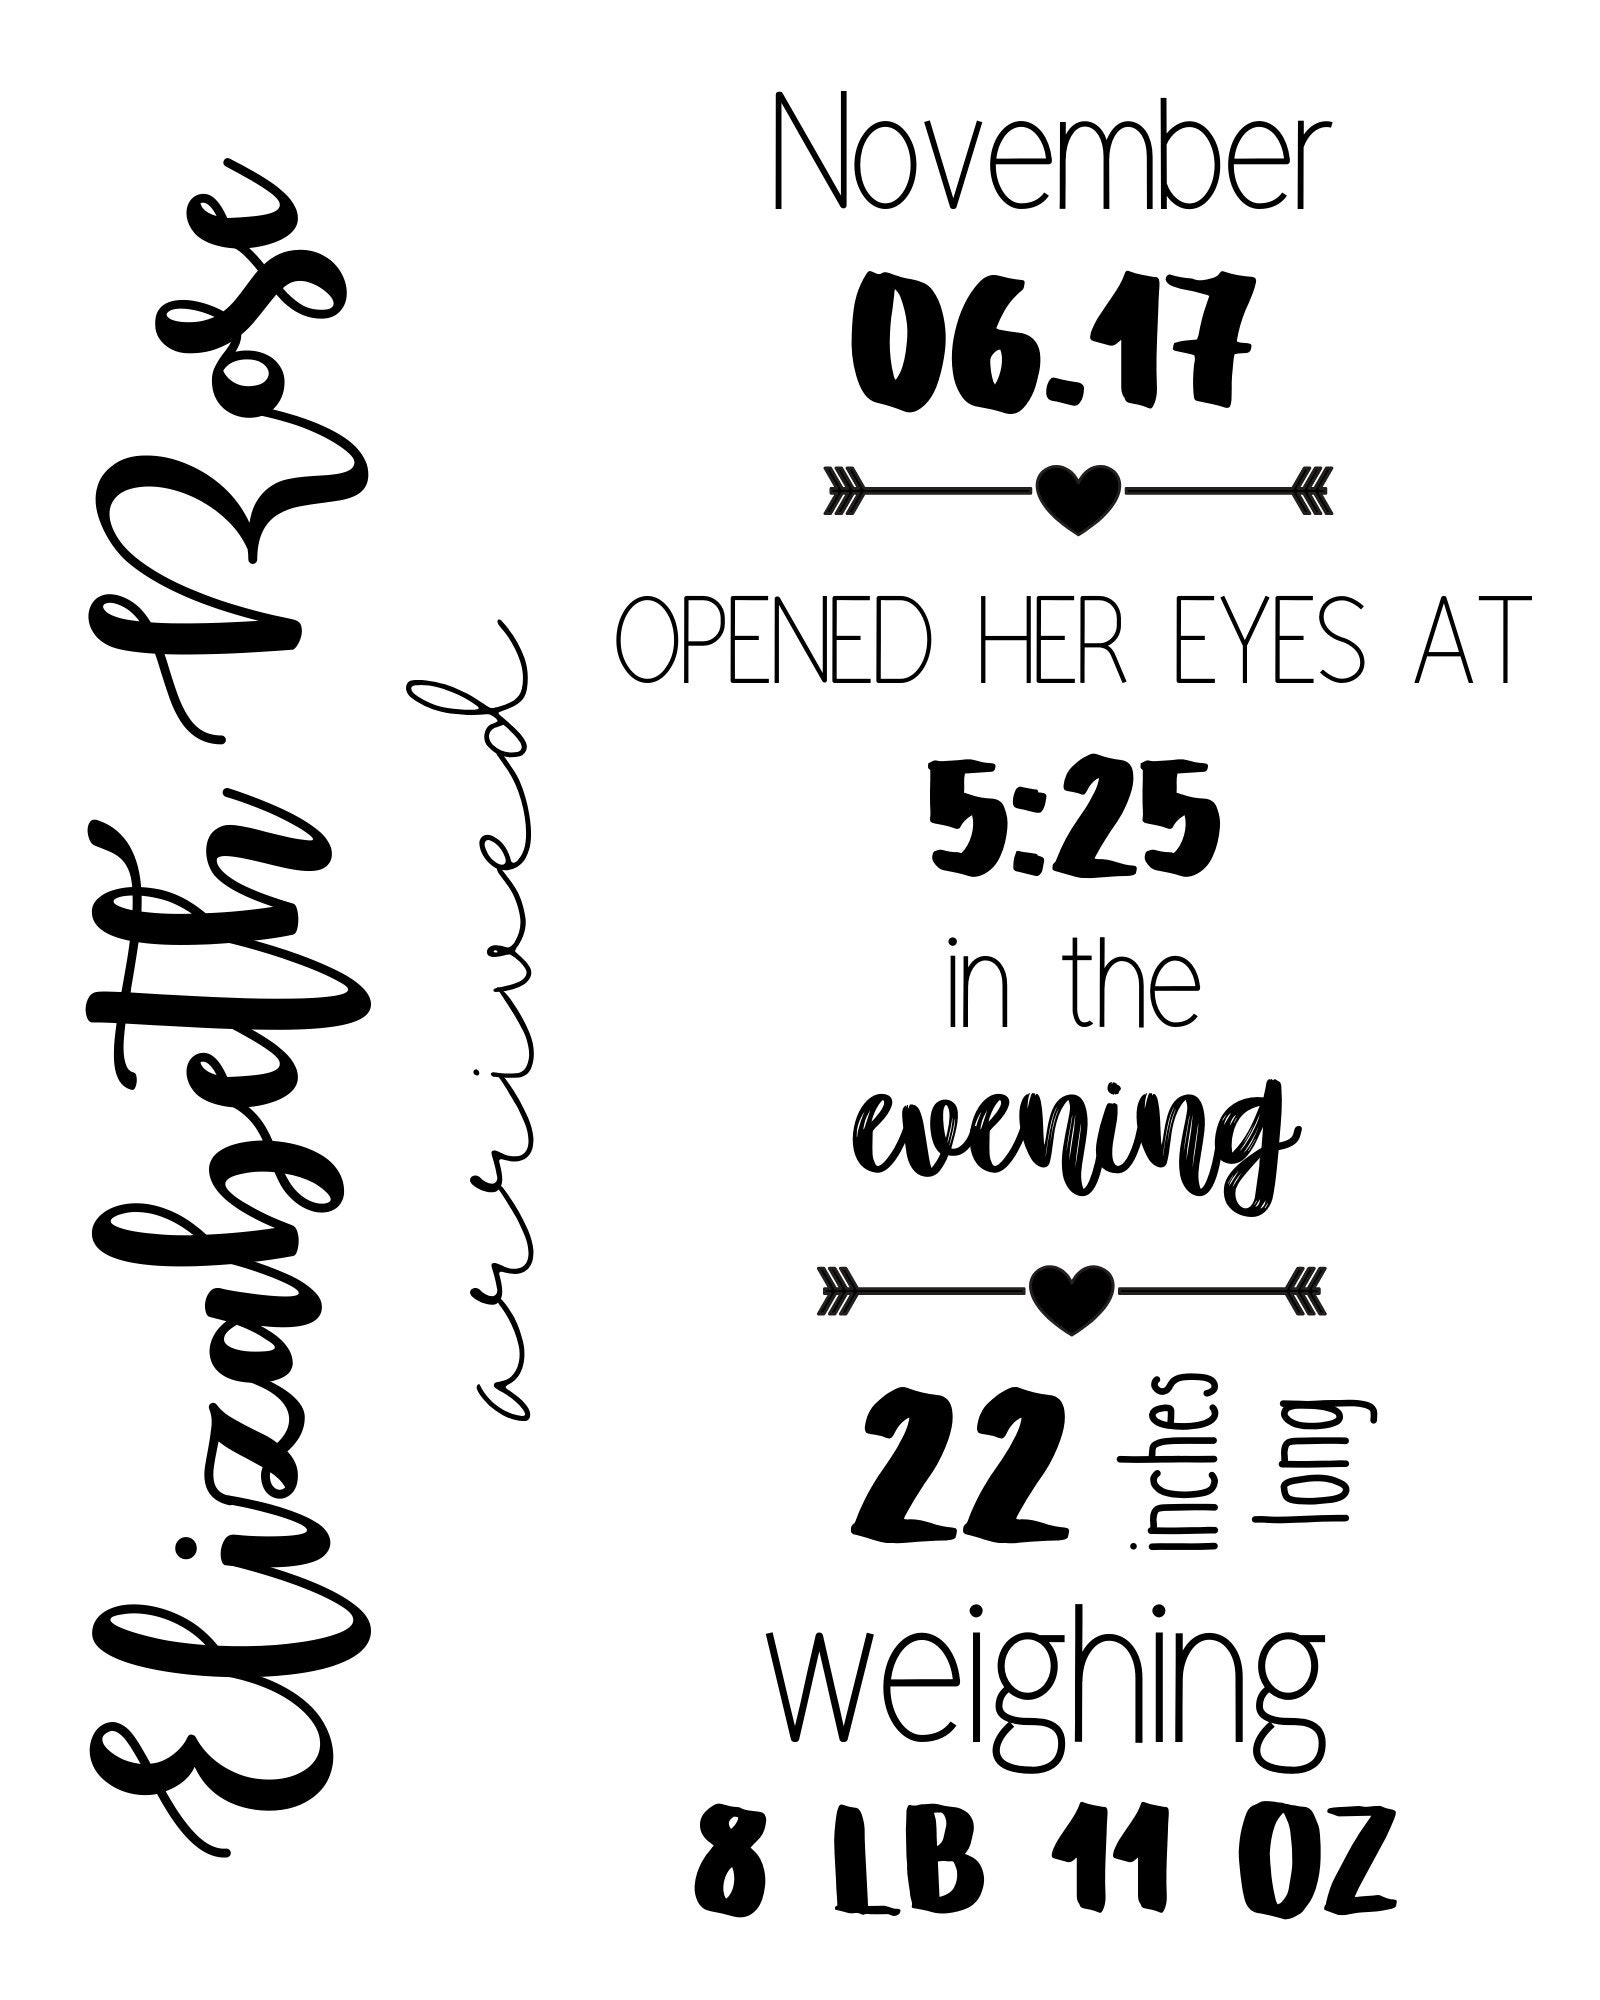 Elizabeth Rose
arrived
November
06.17
OPENED HER EYES AT
5:25
in the
evening
22 inches long
weighing
8 LB 11 OZ